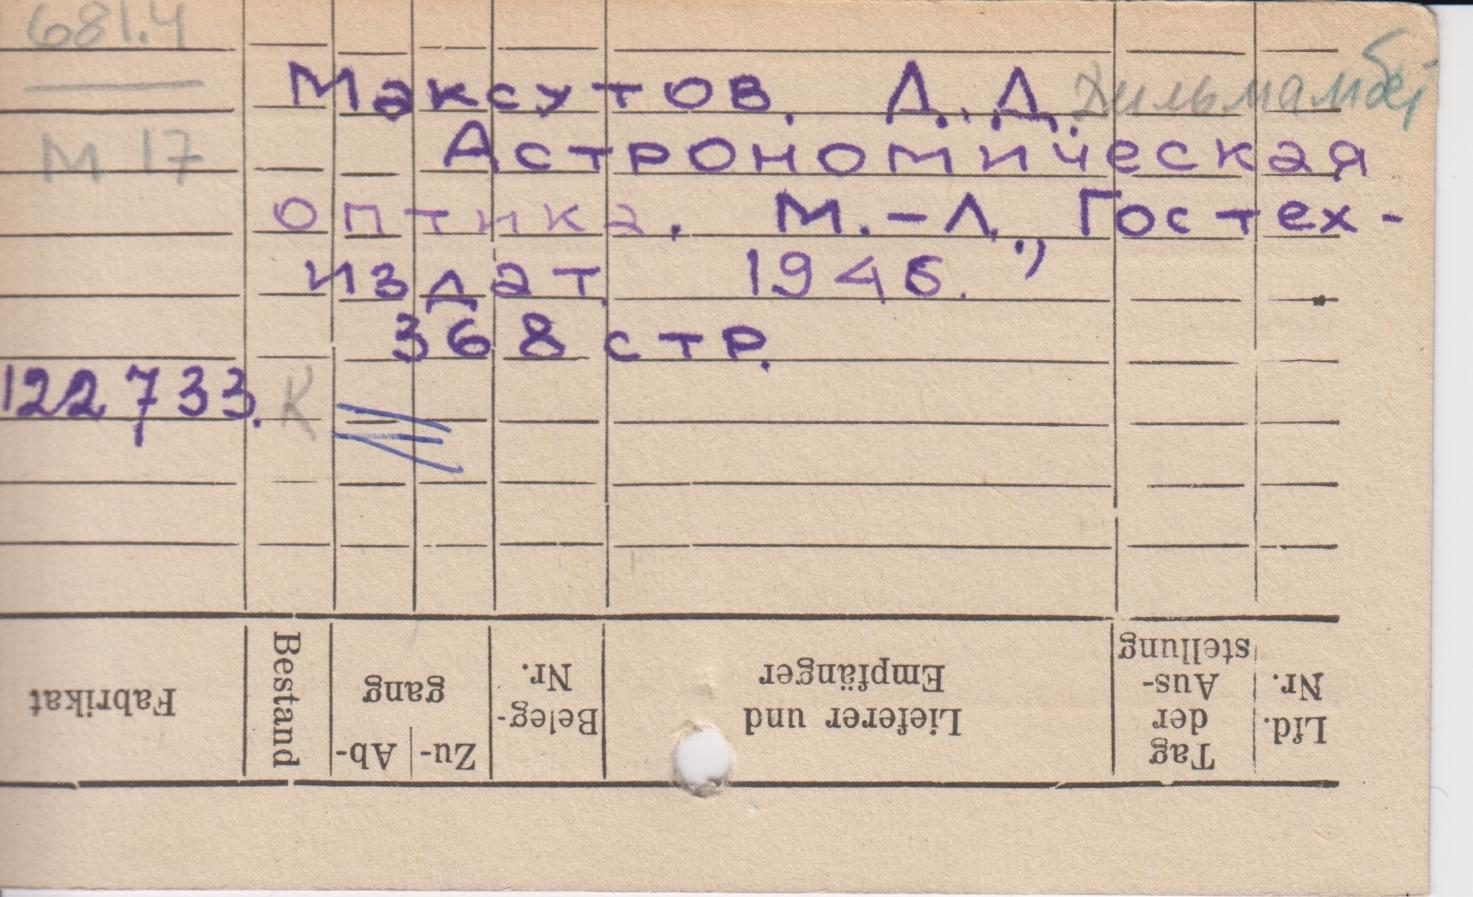 681.4
Максутов. Д. Д.
М 17
Астрономическая
оптика. М.-Л., Гостех-
издат, 1946.
368 стр.
122733. К
Fabrikat
Bestand
Ab-
Zu-
gang
Beleg-
Nr.
Lieferer und
Empfänger
Tag
der
Aus-
stellung
Lfd.
Nr.